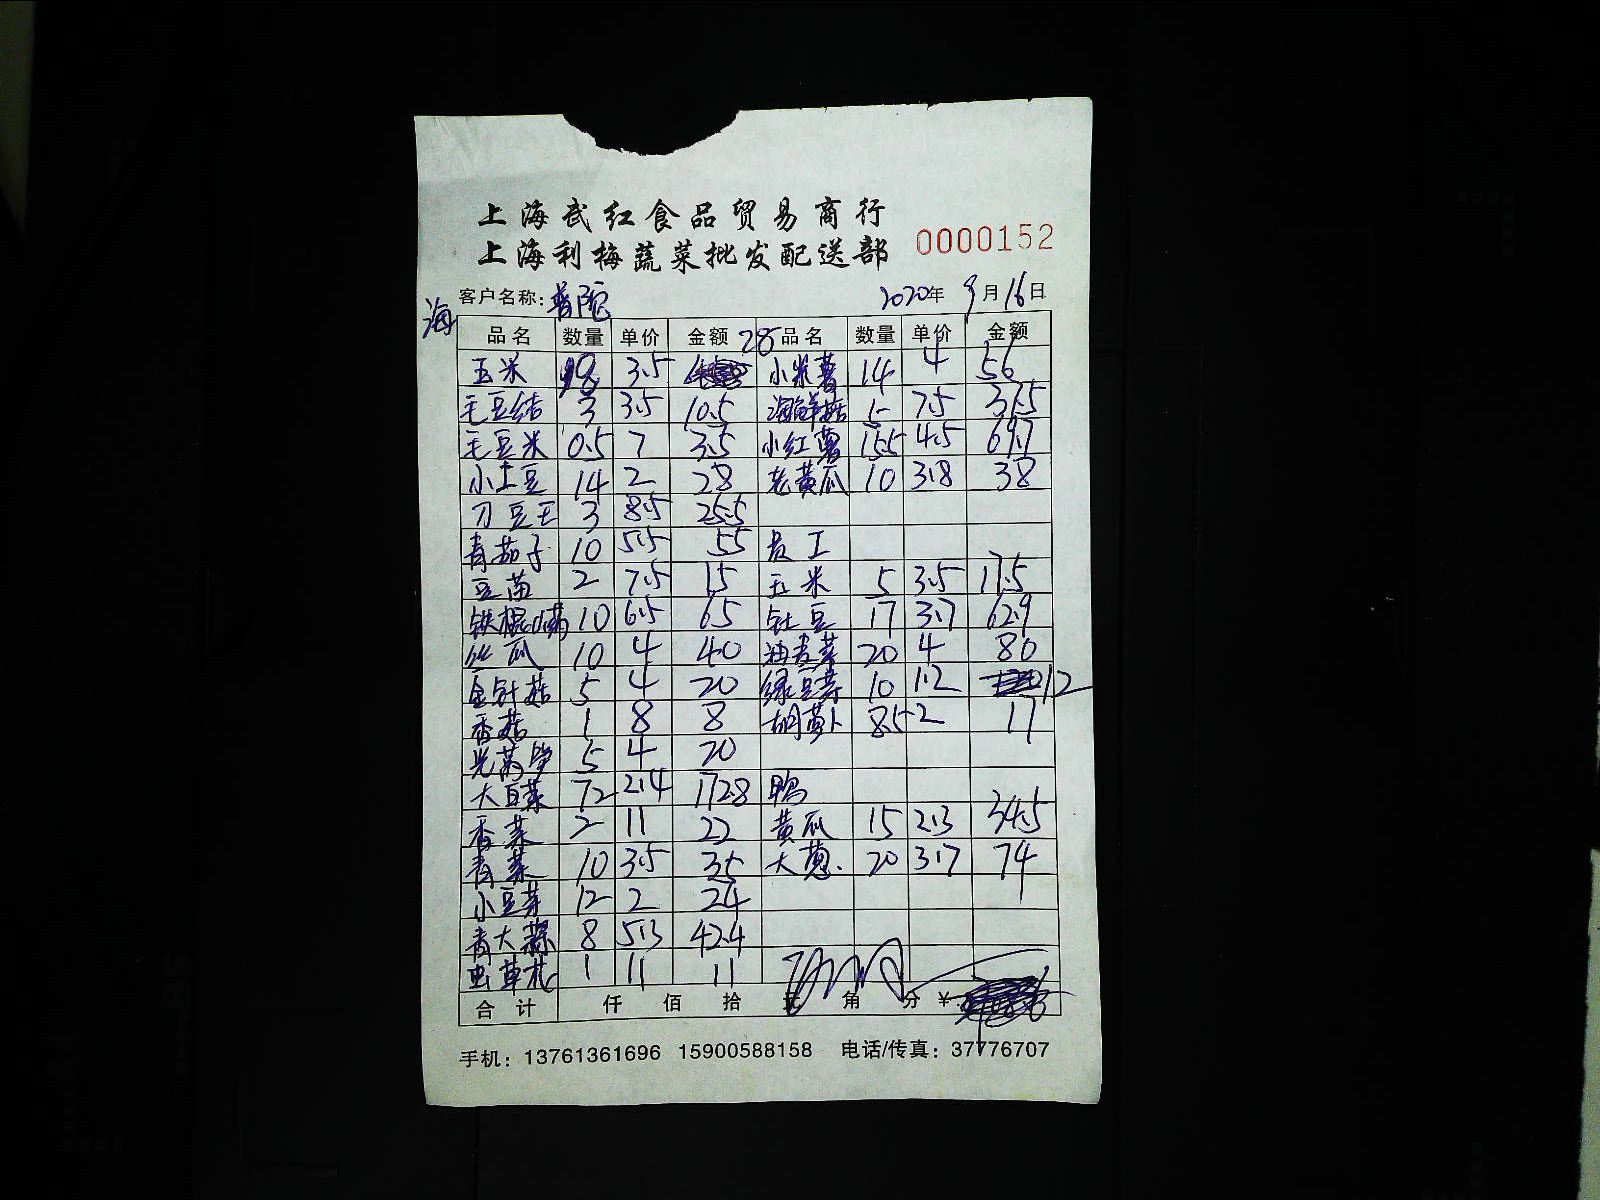 上海武红食品贸易商行
上海利梅蔬菜批发配送部 0000152
海 客户名称：普陀 2020年 9月 16日
品名 数量 单价 金额 品名 数量 单价 金额
玉米 8 3.5 28 小米薯 14 4 56
毛豆结 3 3.5 10.5 海鲜菇 5 7.5 37.5
毛豆米 0.5 7 3.5 小红薯 15.5 4.5 69.7
小土豆 14 2 28 老黄瓜 10 3.8 38
刀豆王 3 8.5 25.5
青茄子 10 5.5 55 员工
豆苗 2 7.5 15 玉米 5 3.5 17.5
铁棍 10 6.5 65 豇豆 17 3.7 62.9
丝瓜 10 4 40 油麦菜 20 4 80
金针菇 5 4 20 绿豆芽 10 1.2 12
香菇 1 8 8 胡萝卜 8.5 2 17
光莴笋 5 4 20
大白菜 72 2.4 172.8 鸭
香菜 2 11 22 黄瓜 15 2.3 34.5
青菜 10 3.5 35 大葱 20 3.7 74
小豆芽 12 2 24
青大蒜 8 5.3 42.4
虫草花 1 11 11
合计 仟 佰 拾 元 角 分 ￥
手机：13761361696 15900588158 电话/传真：37776707